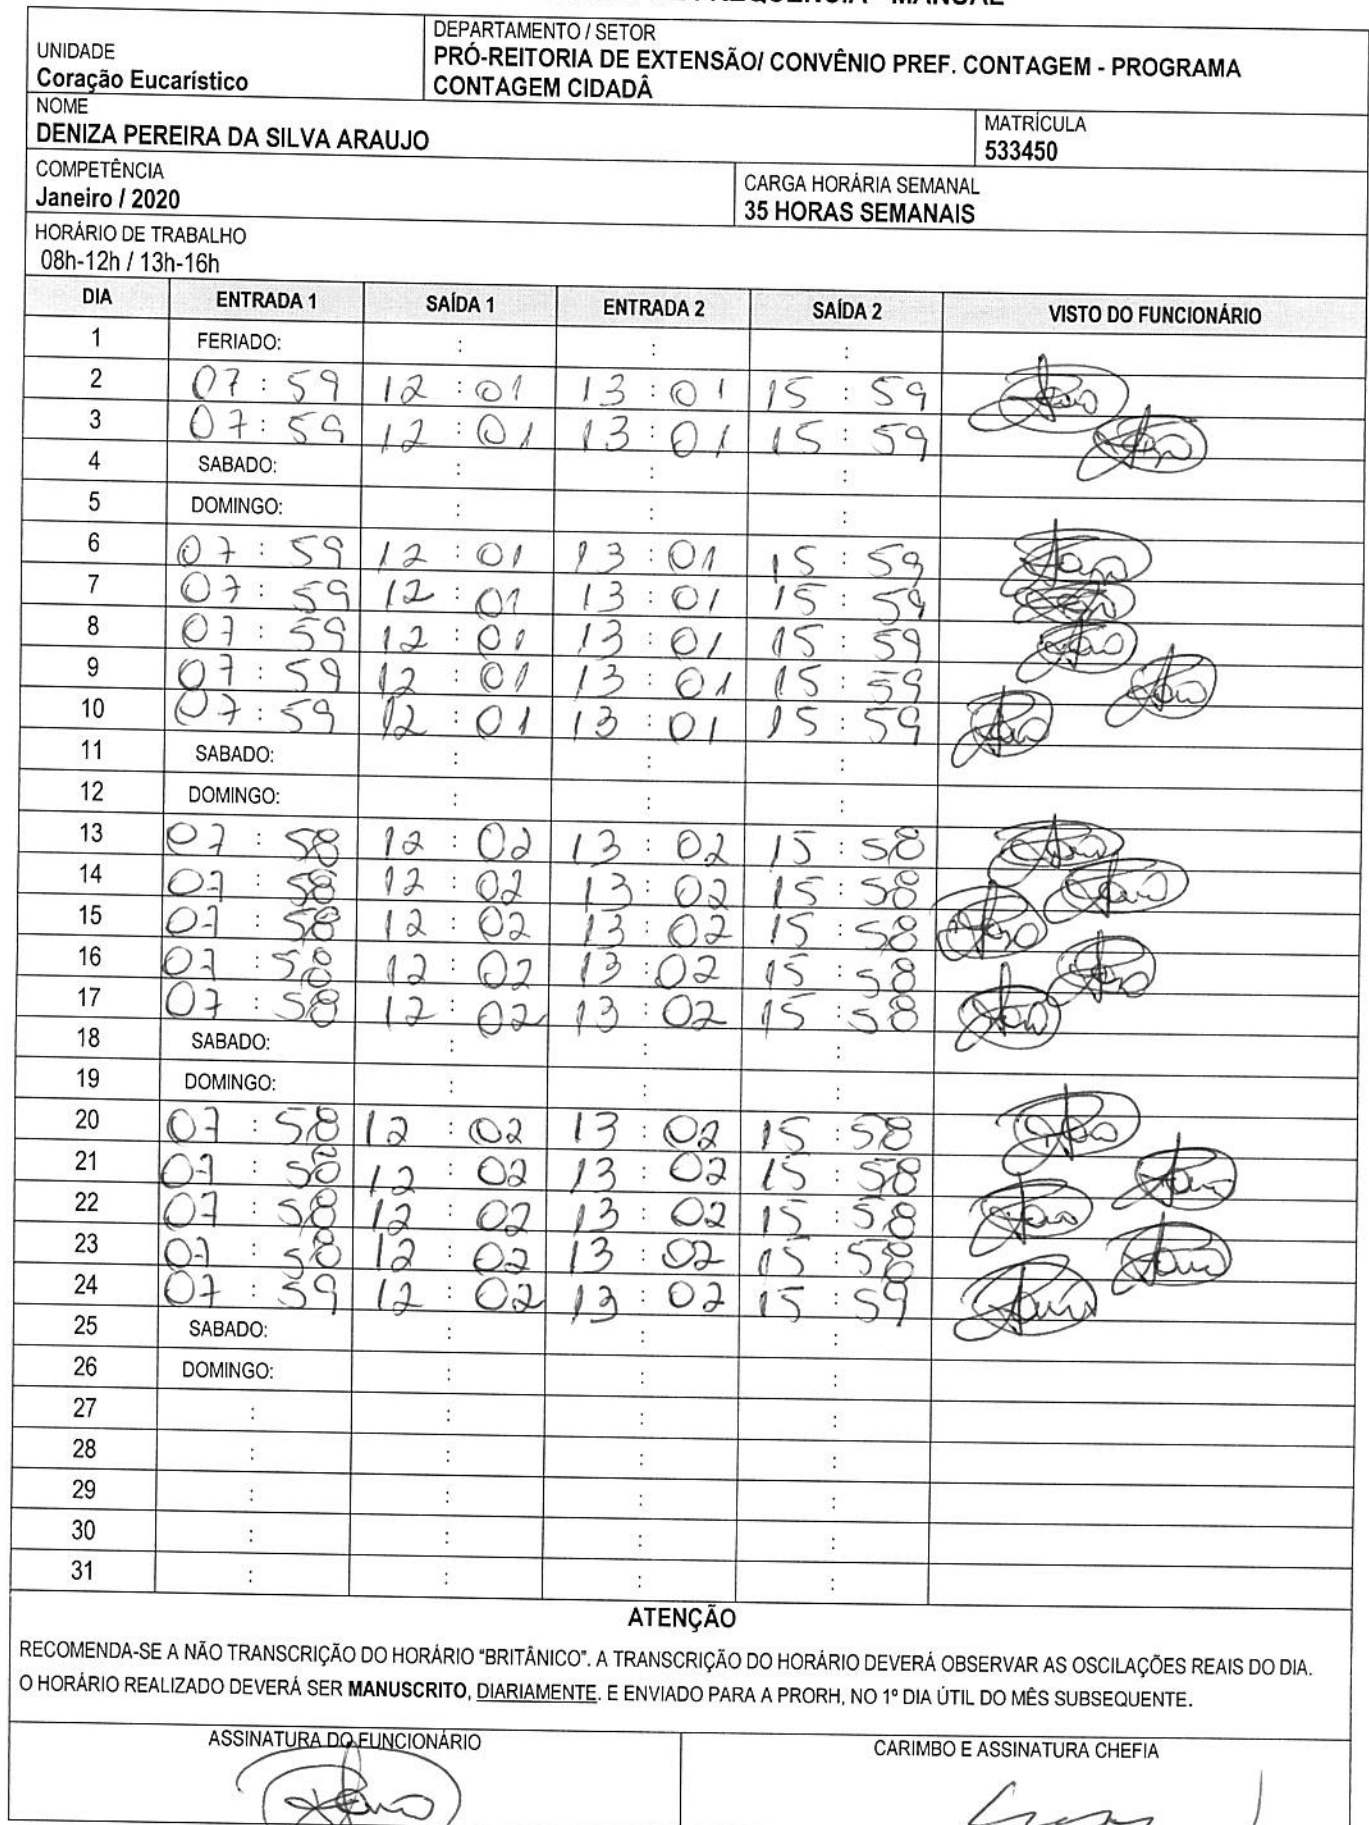 UNIDADE
Coração Eucarístico
DEPARTAMENTO / SETOR
PRÓ-REITORIA DE EXTENSÃO/ CONVÊNIO PREF. CONTAGEM - PROGRAMA
CONTAGEM CIDADÂ
NOME
DENIZA PEREIRA DA SILVA ARAUJO
MATRÍCULA
533450
COMPETÊNCIA
Janeiro / 2020
CARGA HORÁRIA SEMANAL
35 HORAS SEMANAIS
HORÁRIO DE TRABALHO
08h-12h / 13h-16h
DIA ENTRADA 1 SAÍDA 1 ENTRADA 2 SAÍDA 2 VISTO DO FUNCIONÁRIO
1 FERIADO: : : :
2 07:59 12:01 13:01 15:59
3 07:59 12:01 13:01 15:59
4 SABADO: : : :
5 DOMINGO: : : :
6 07:59 12:01 13:01 15:59
7 07:59 12:01 13:01 15:59
8 07:59 12:01 13:01 15:59
9 07:59 12:01 13:01 15:59
10 07:59 12:01 13:01 15:59
11 SABADO: : : :
12 DOMINGO: : : :
13 07:58 12:02 13:02 15:58
14 07:58 12:02 13:02 15:58
15 07:58 12:02 13:02 15:58
16 07:58 12:02 13:02 15:58
17 07:58 12:02 13:02 15:58
18 SABADO: : : :
19 DOMINGO: : : :
20 07:58 12:02 13:02 15:58
21 07:58 12:02 13:02 15:58
22 07:58 12:02 13:02 15:58
23 07:58 12:02 13:02 15:58
24 07:59 12:02 13:02 15:59
25 SABADO: : : :
26 DOMINGO: : : :
27 : : : :
28 : : : :
29 : : : :
30 : : : :
31 : : : :
ATENÇÃO
RECOMENDA-SE A NÃO TRANSCRIÇÃO DO HORÁRIO "BRITÂNICO". A TRANSCRIÇÃO DO HORÁRIO DEVERÁ OBSERVAR AS OSCILAÇÕES REAIS DO DIA.
O HORÁRIO REALIZADO DEVERÁ SER MANUSCRITO, DIARIAMENTE. E ENVIADO PARA A PRORH, NO 1º DIA ÚTIL DO MÊS SUBSEQUENTE.
ASSINATURA DO FUNCIONÁRIO
CARIMBO E ASSINATURA CHEFIA